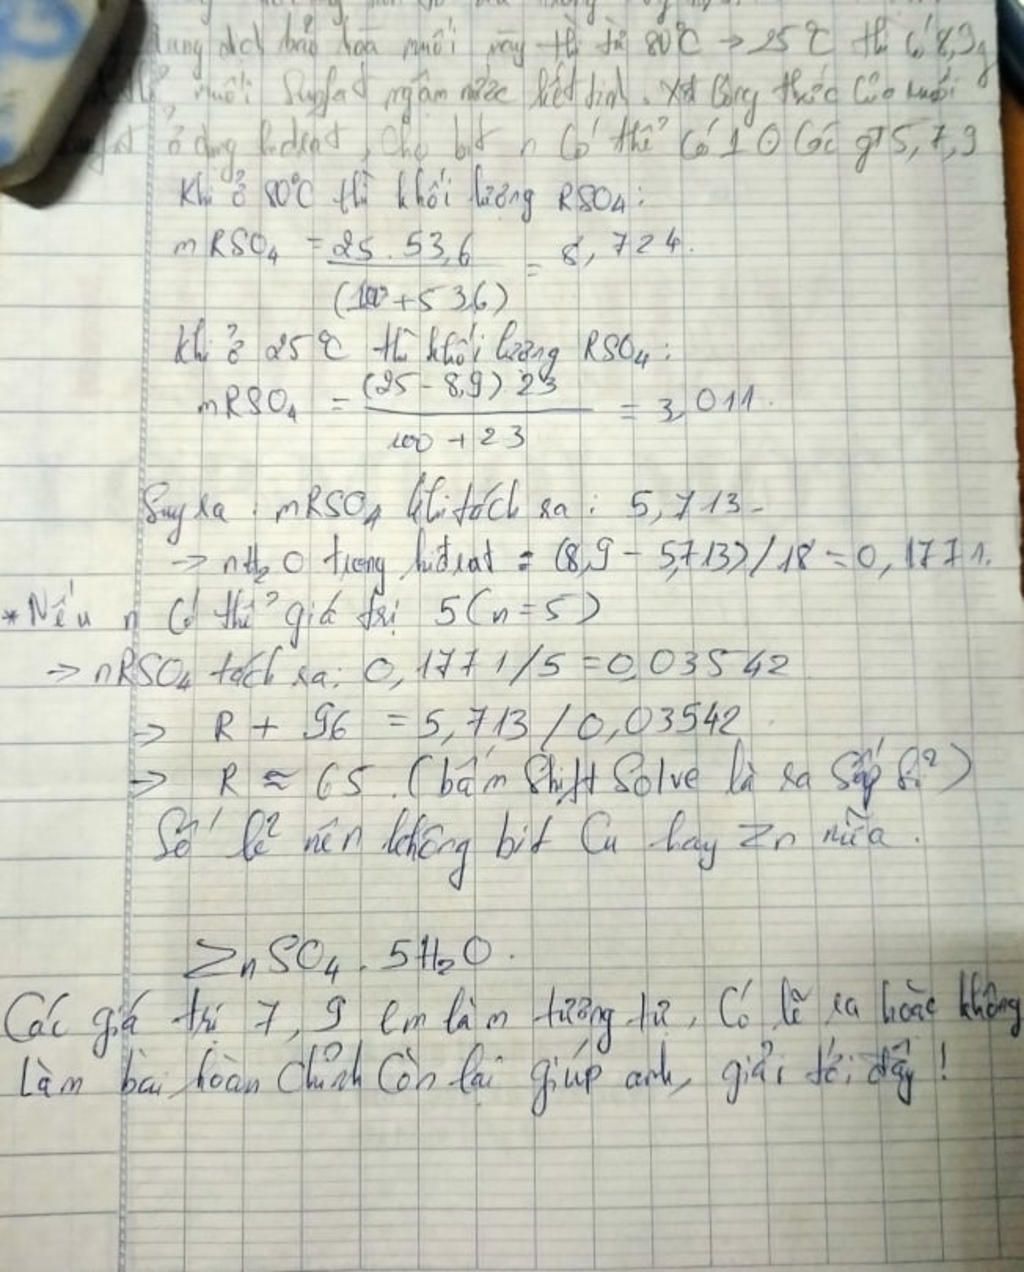 dung dịch bão hòa muối này thì từ 80°C → 25°C thì có 8,9g
muối Sunfat ngậm nước kết tinh. Xđ Công thức Của muối
ở dạng hiđrat, Cho bit n Có thể Có 1 0 Các gt 5, 7, 9
Khi ở 80°C thì khối lượng RSO4:
mRSO4 = 25 . 53,6 / (100 + 53,6) = 8,724.
Khi ở 25°C thì khối lượng RSO4:
mRSO4 = (25 - 8,9) 23 / 100 + 23 = 3,011.
Suy ra : mRSO4 khi tách ra : 5,713 -
→ nH2O trong hiđrat = (8,9 - 5,713) / 18 = 0,1771.
* Nếu n Có thể giá trị 5 (n = 5)
→ nRSO4 tách ra: 0,1771/5 = 0,03542
→ R + 96 = 5,713 / 0,03542
→ R ≈ 65. (bấm Shift Solve là ra Sấp Sỉ)
Số lẻ nên không bit Cu hay Zn nữa.
ZnSO4 . 5H2O.
Các giá trị 7, 9 em làm tương tự, Có lẽ ra hoặc không
Làm bài hoàn Chỉnh Còn lại giúp anh, giải tới đây !